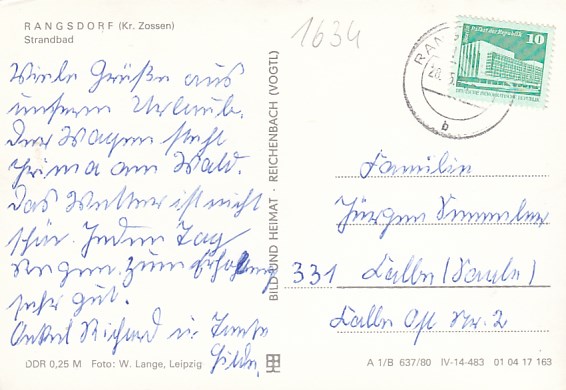 RANGSDORF (Kr. Zossen)
Strandbad
1634
Viele Grüße aus
unserem Urlaub.
Der Wagen steht
prima am Wald.
Das Wetter ist nicht
schön. Jeden Tag
Regen. Zum Erholung
sehr gut.
Onkel Richard u. Tante
Hilde.
DDR 0,25 M Foto: W. Lange, Leipzig
BILD UND HEIMAT · REICHENBACH (VOGTL)
Palast der Republik
10
DEUTSCHE DEMOKRATISCHE REPUBLIK
RANGS
20.
b
Familie
Jürgen
331 Calbe (Saale)
Calbe Ost Nr. 2
A 1/B 637/80 IV-14-483 01 04 17 163